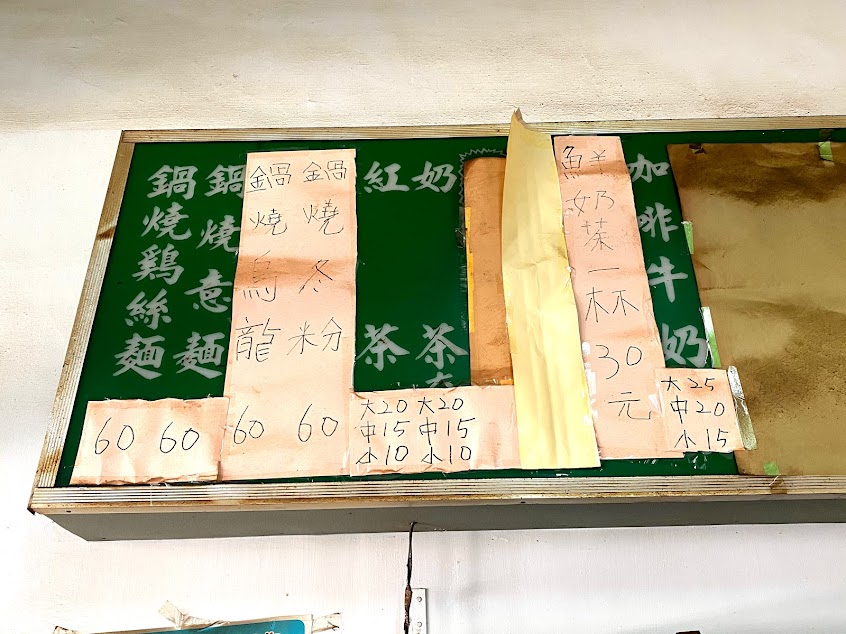 鍋燒鷄絲麵
60
鍋燒意麵
60
鍋燒烏龍
60
鍋燒冬粉
60
紅茶
大20
中15
小10
奶茶
大20
中15
小10
鮮奶茶一杯30元
咖啡牛奶
大25
中20
小15